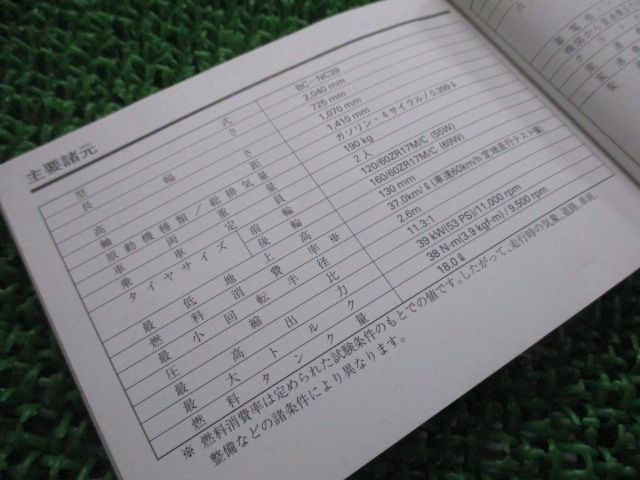 主要諸元
型式 BC-NC39
長さ 2,040 mm
幅 725 mm
高さ 1,070 mm
軸距 1,410 mm
原動機種類/総排気量 ガソリン・4サイクル/0.399ℓ
車両重量 190 kg
乗車定員 2人
タイヤサイズ 前輪 120/60ZR17M/C (55W)
後輪 160/60ZR17M/C (69W)
最低地上高 130 mm
燃料消費率※ 37.0km/ℓ(車速60km/h 定地走行テスト値)
最小回転半径 2.6m
圧縮比 11.3:1
最高出力 39 kW(53 PS)/11,000 rpm
最大トルク 38 N・m(3.9 kgf・m) / 9,500 rpm
燃料タンク量 18.0 ℓ
※ 燃料消費率は定められた試験条件のもとでの値です。したがって、走行時の気象、道路、車両、
整備などの諸条件により異なります。